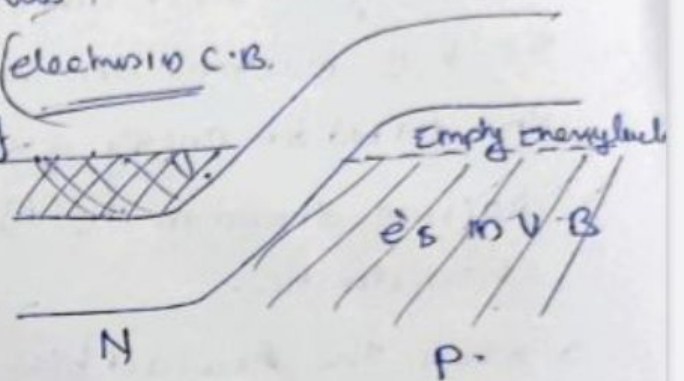 electrons in C.B.
Empty Energy level
e's in V B
N
P.